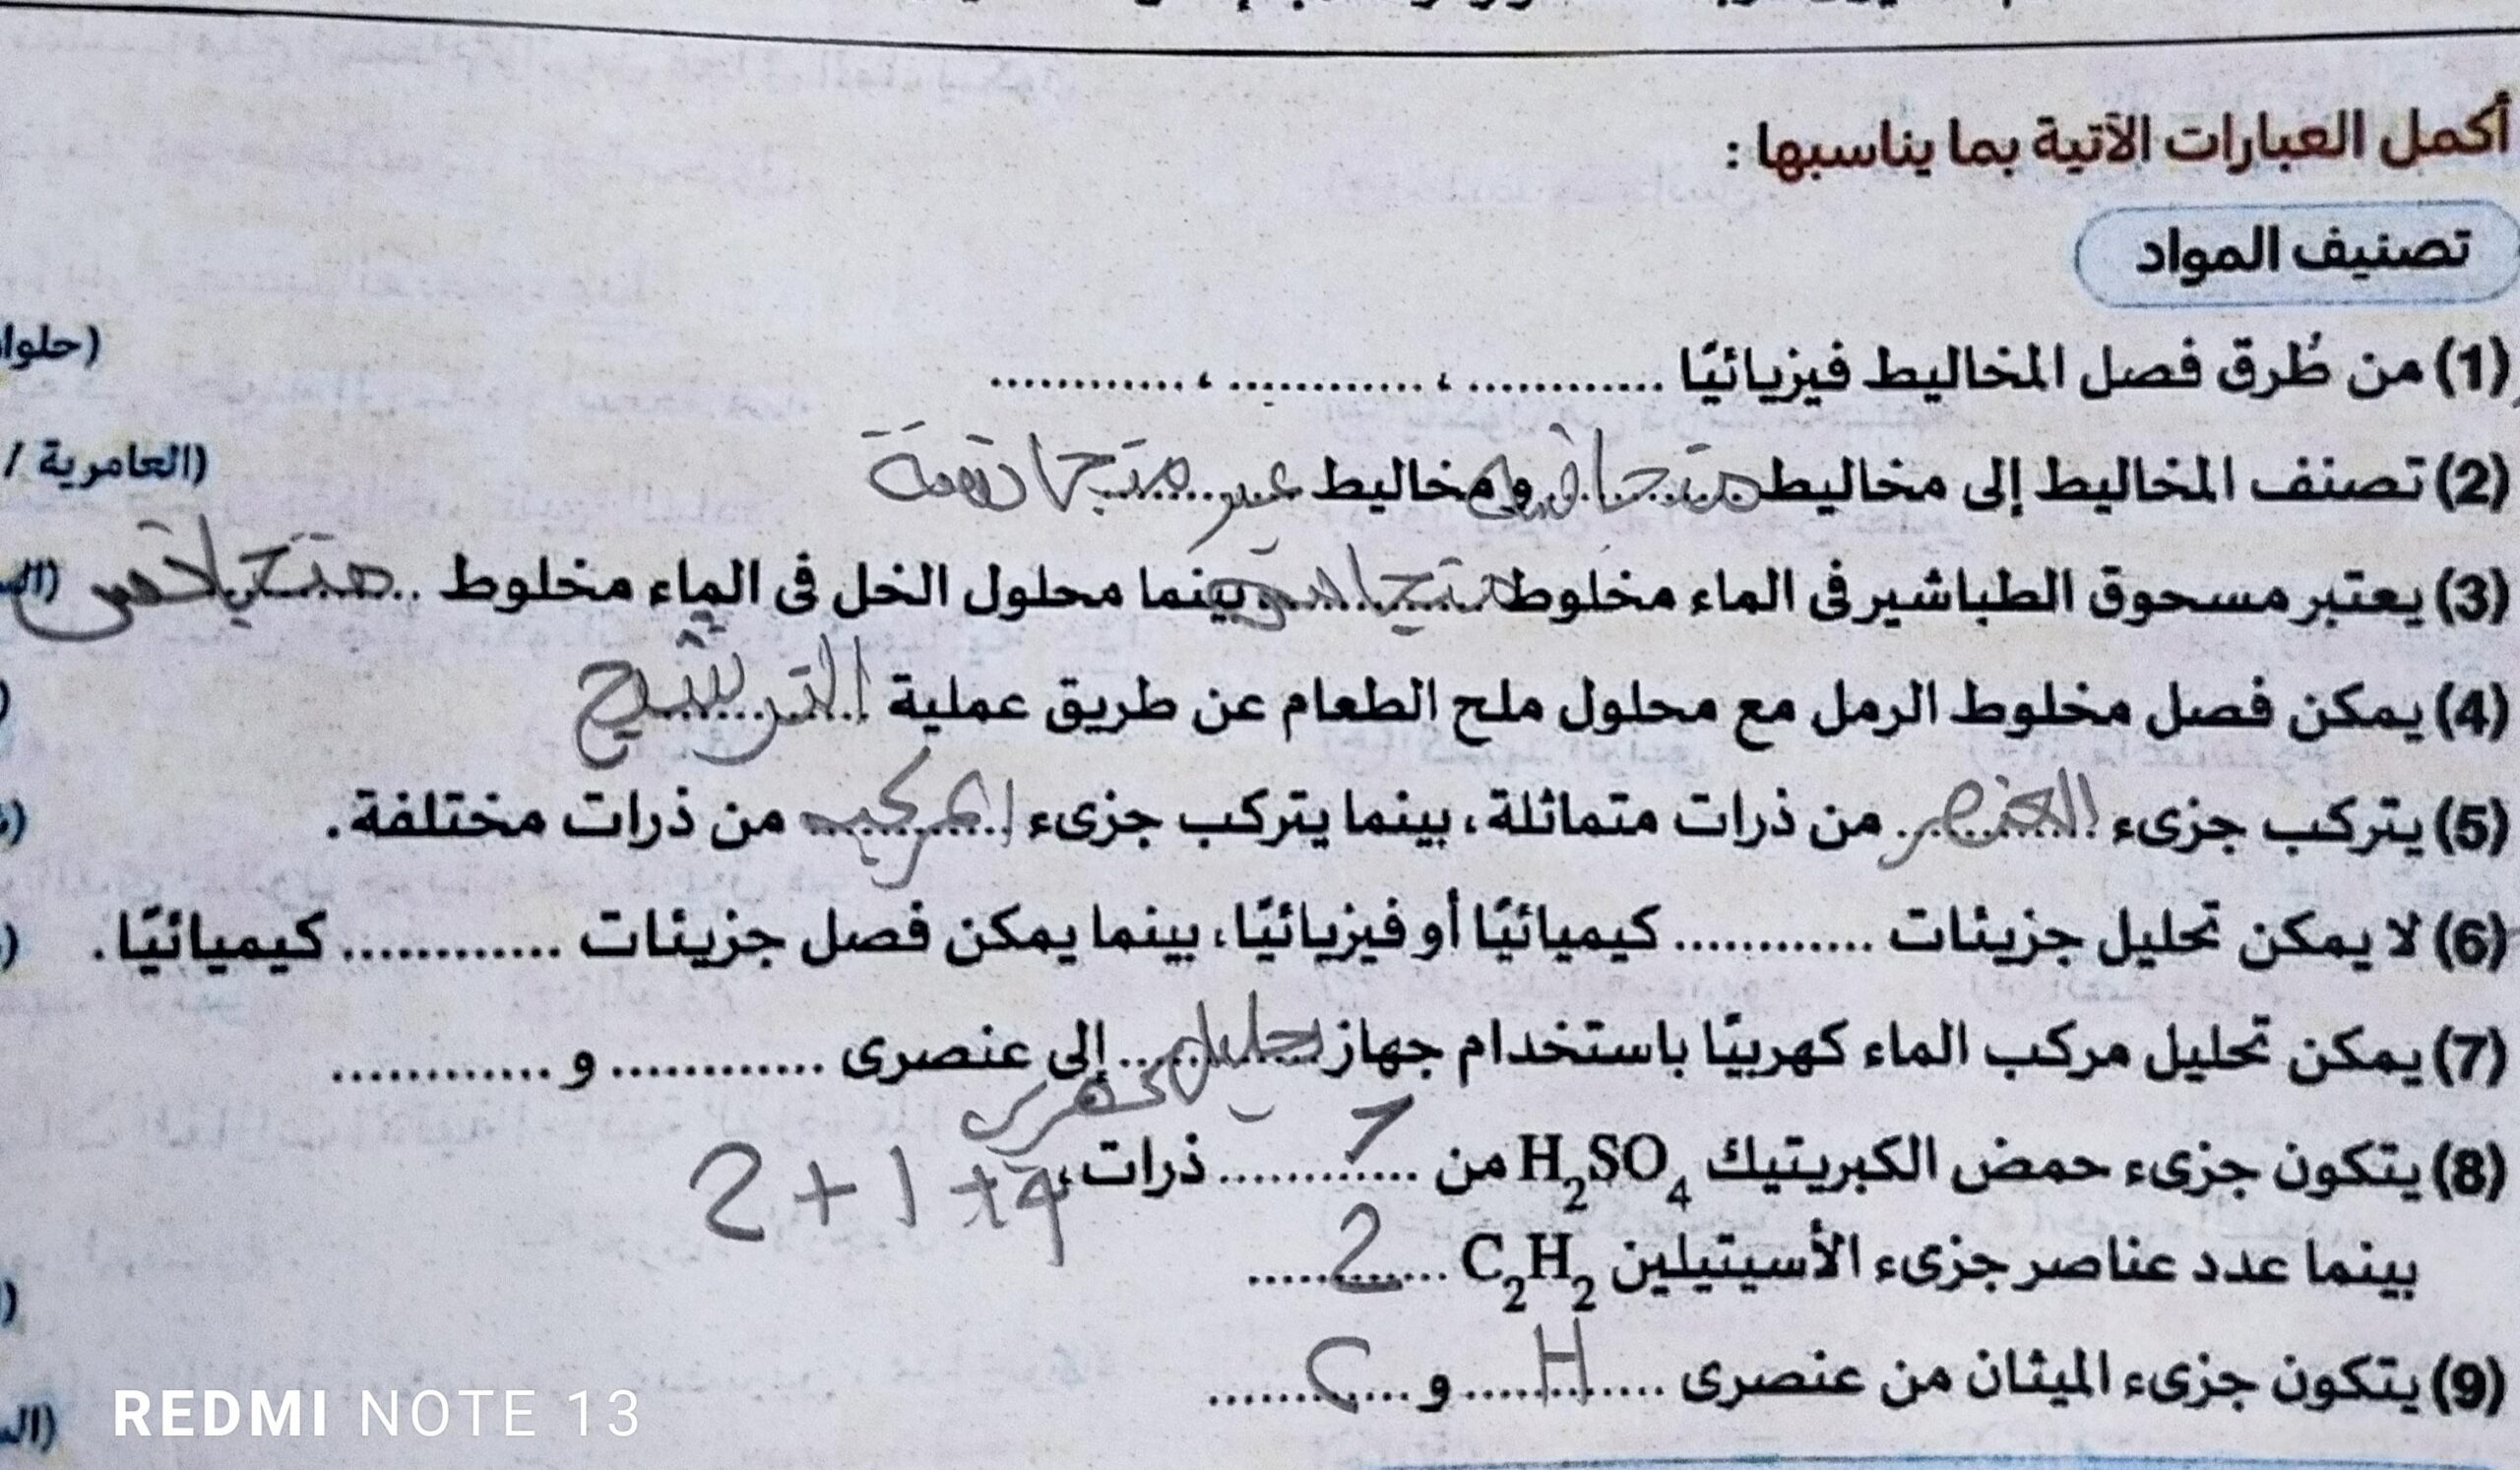 أكمل العبارات الآتية بما يناسبها :
تصنيف المواد
(1) من طُرق فصل المخاليط فيزيائيًا ............. ، ............. ، ............. (حلوا
(2) تصنف المخاليط إلى مخاليط متجانسة ومخاليط غير متجانسة (العامرية /
(3) يعتبر مسحوق الطباشير فى الماء مخلوط بينما محلول الخل فى الماء مخلوط متجانس (ال
(4) يمكن فصل مخلوط الرمل مع محلول ملح الطعام عن طريق عملية الترشيح
(5) يتركب جزىء العنصر من ذرات متماثلة، بينما يتركب جزىء المركب من ذرات مختلفة.
(6) لا يمكن تحليل جزيئات ............. كيميائيًا أو فيزيائيًا، بينما يمكن فصل جزيئات ............. كيميائيًا.
(7) يمكن تحليل مركب الماء كهربيًا باستخدام جهاز إلى عنصرى ............. و .............
(8) يتكون جزىء حمض الكبريتيك H₂SO₄ من 7 ذرات، 2+1+4
بينما عدد عناصر جزىء الأسيتيلين C₂H₂ 2
(9) يتكون جزىء الميثان من عنصرى H و C
REDMI NOTE 13